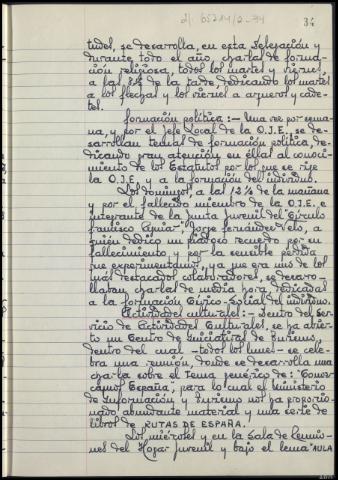 34
tudes, se desarrolla, en esta Delegación y
durante todo el año, charlas de forma-
ción religiosa, todos los martes y viernes,
a las de la tarde, dedicando los martes
a los flechas y los viernes a arqueros y cade-
tes.
Formación política:- Una vez por sema-
na, y por el Jefe Local de la O.J.E., se de-
sarrollan temas de formación política, de-
dicando gran atención en ellas al conoci-
miento de los Estatutos por los que se rige
la O.J.E. y a la formación del individuo.
Los domingos, a las 12½ de la mañana
y por el fallecido miembro de la O.J.E. e
integrante de la Junta Juvenil del "Círculo
Francisco Aguiar", Jorge Fernández Velo, a
quien dedico un piadoso recuerdo por su
fallecimiento y por la sensible pérdida
que experimentamos, ya que era uno de los
más destacados colaboradores, se desarro-
llaban charlas de media hora, dedicadas
a la formación Cívico-Social del individuo.
Actividades culturales:- Dentro del Ser-
vicio de Actividades Culturales, se ha abier-
to un Centro de Iniciativas de Turismo,
dentro del cual -todos los lunes- se cele-
bra una reunión, donde se desarrolla una
charla sobre el tema genérico de: "Conoz-
camos España", para lo cual el Ministerio
de Información y Turismo nos ha proporcio-
nado abundante material y una serie de
libros de RUTAS DE ESPAÑA.
Los miércoles y en la Sala de Reunio-
nes del Hogar Juvenil y bajo el lema "AULA